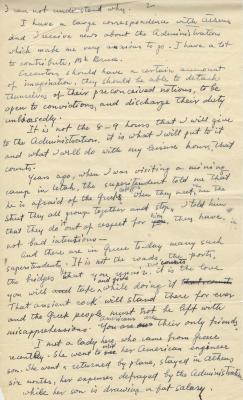 2
I can not understand why.
I have a large correspondence with Athens
and I receive news about the Administration
which make me very anxious to go. I have a lot
to contribute, Mr
Executors should have a certain amount
of imagination, they should be able to detach
themselves of their preconceived notions, to be
open to convictions, and discharge their duty
unbiasedly.
It is not the 8-9 hours that I will give
to the Administration, it is what I will put to it
and what I will do with my leisure hours, that
counts.
Years ago, when I was visiting a mining
camp in Utah, the superintendent told me that
he is afraid of the Greeks when they
they all group together and stop. I told him
that they do out of respect for him, they have
not bad intentions—
And there are in Greece today many such
superintendents. It is not the roads, the ports,
the bridges that you repair, it is the love
you will take and give while doing it
That ancient rock will stand there for ever
and the Greek people must not be left with
misapprehensions. Americans are their only friends
I met a lady who came from Greece
recently. She went to see her American engineer
son. She went & returned by plane, stayed in Athens
six weeks, her expenses defrayed by the Administration
while her son is drawing a fat salary.